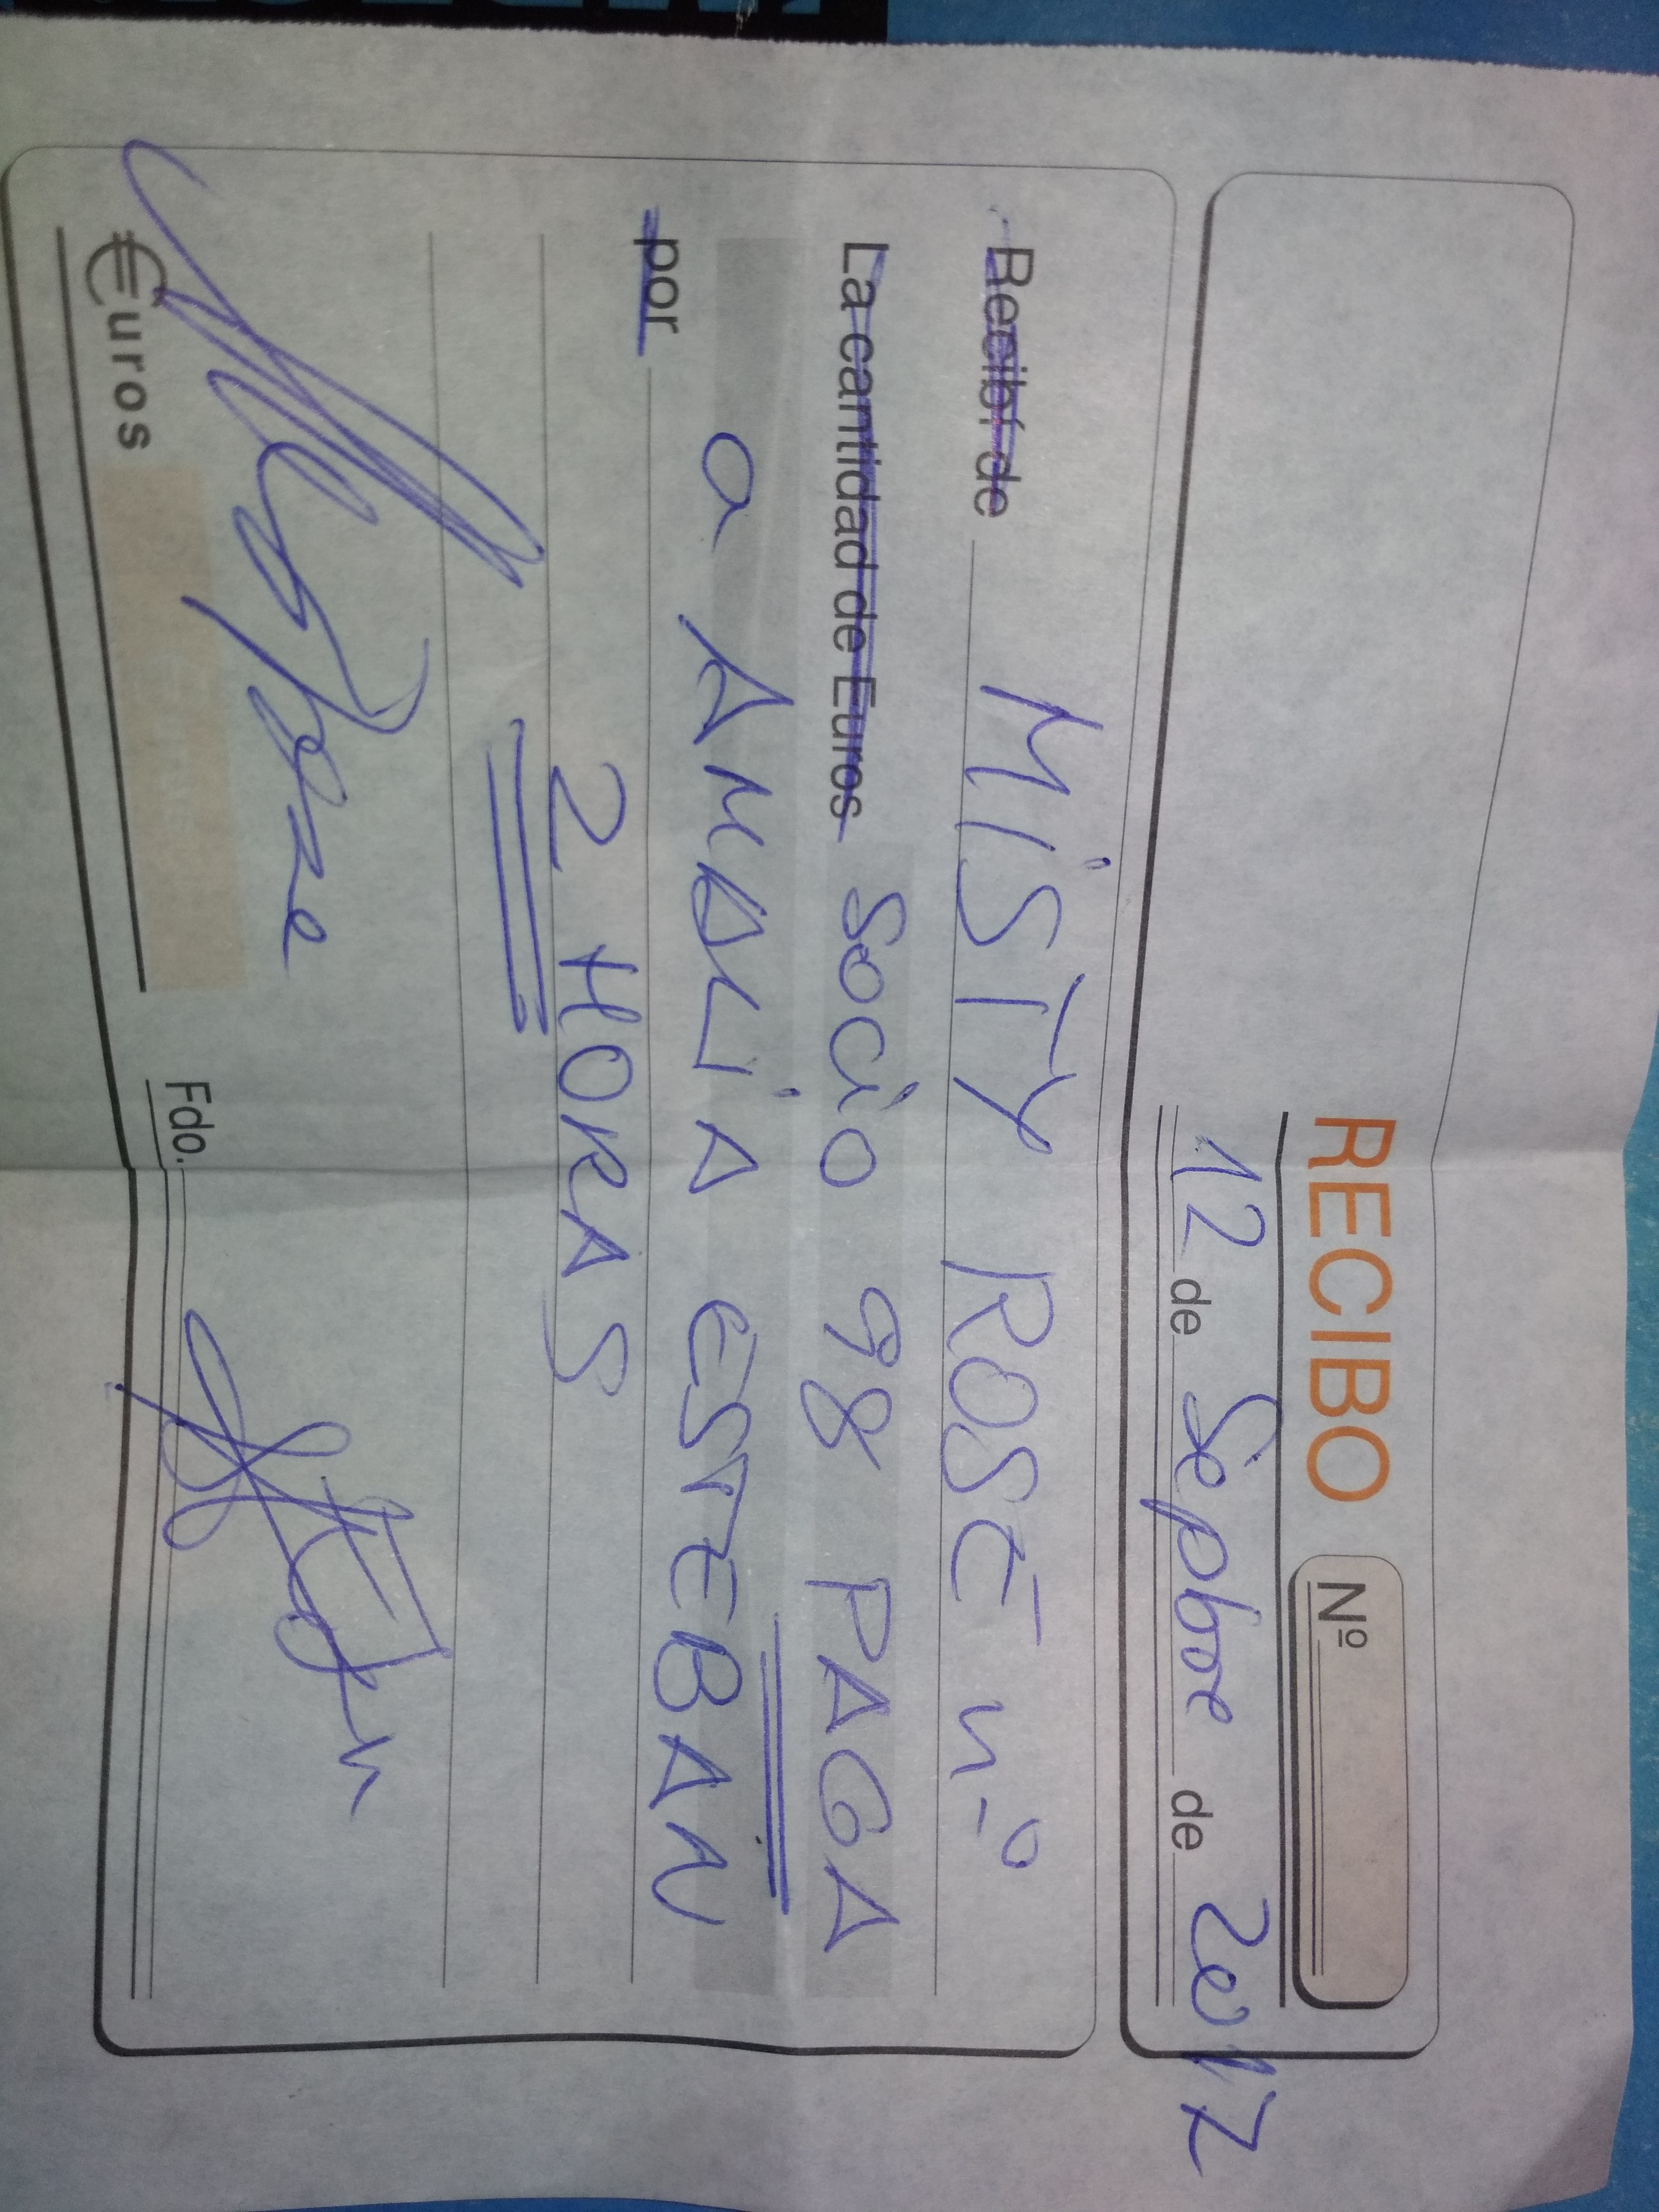 RECIBO Nº
12 de Sepbre de 2017
Recibí de MISTY ROSE n.º
La cantidad de Euros Socio 98 PAGA
a AMALIA ESTEBAN
por
2 HORAS
€uros
Fdo.